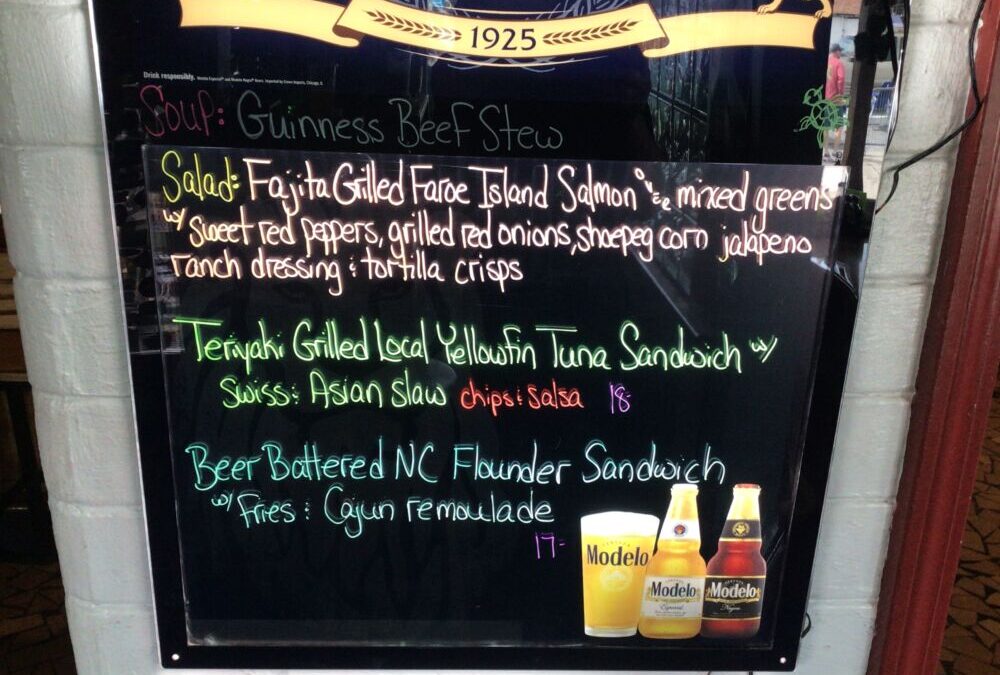 1925
Drink responsibly.
Soup: Guinness Beef Stew
Salad: Fajita Grilled Faroe Island Salmon mixed greens
w/ sweet red peppers, grilled red onions, shoepeg corn jalapeno
ranch dressing & tortilla crisps
Teriyaki Grilled Local Yellowfin Tuna Sandwich w/
swiss & Asian slaw chips & salsa 18-
Beer Battered NC Flounder Sandwich
w/ Fries & Cajun remoulade
17-
Modelo
Modelo
Especial
Modelo
Negra